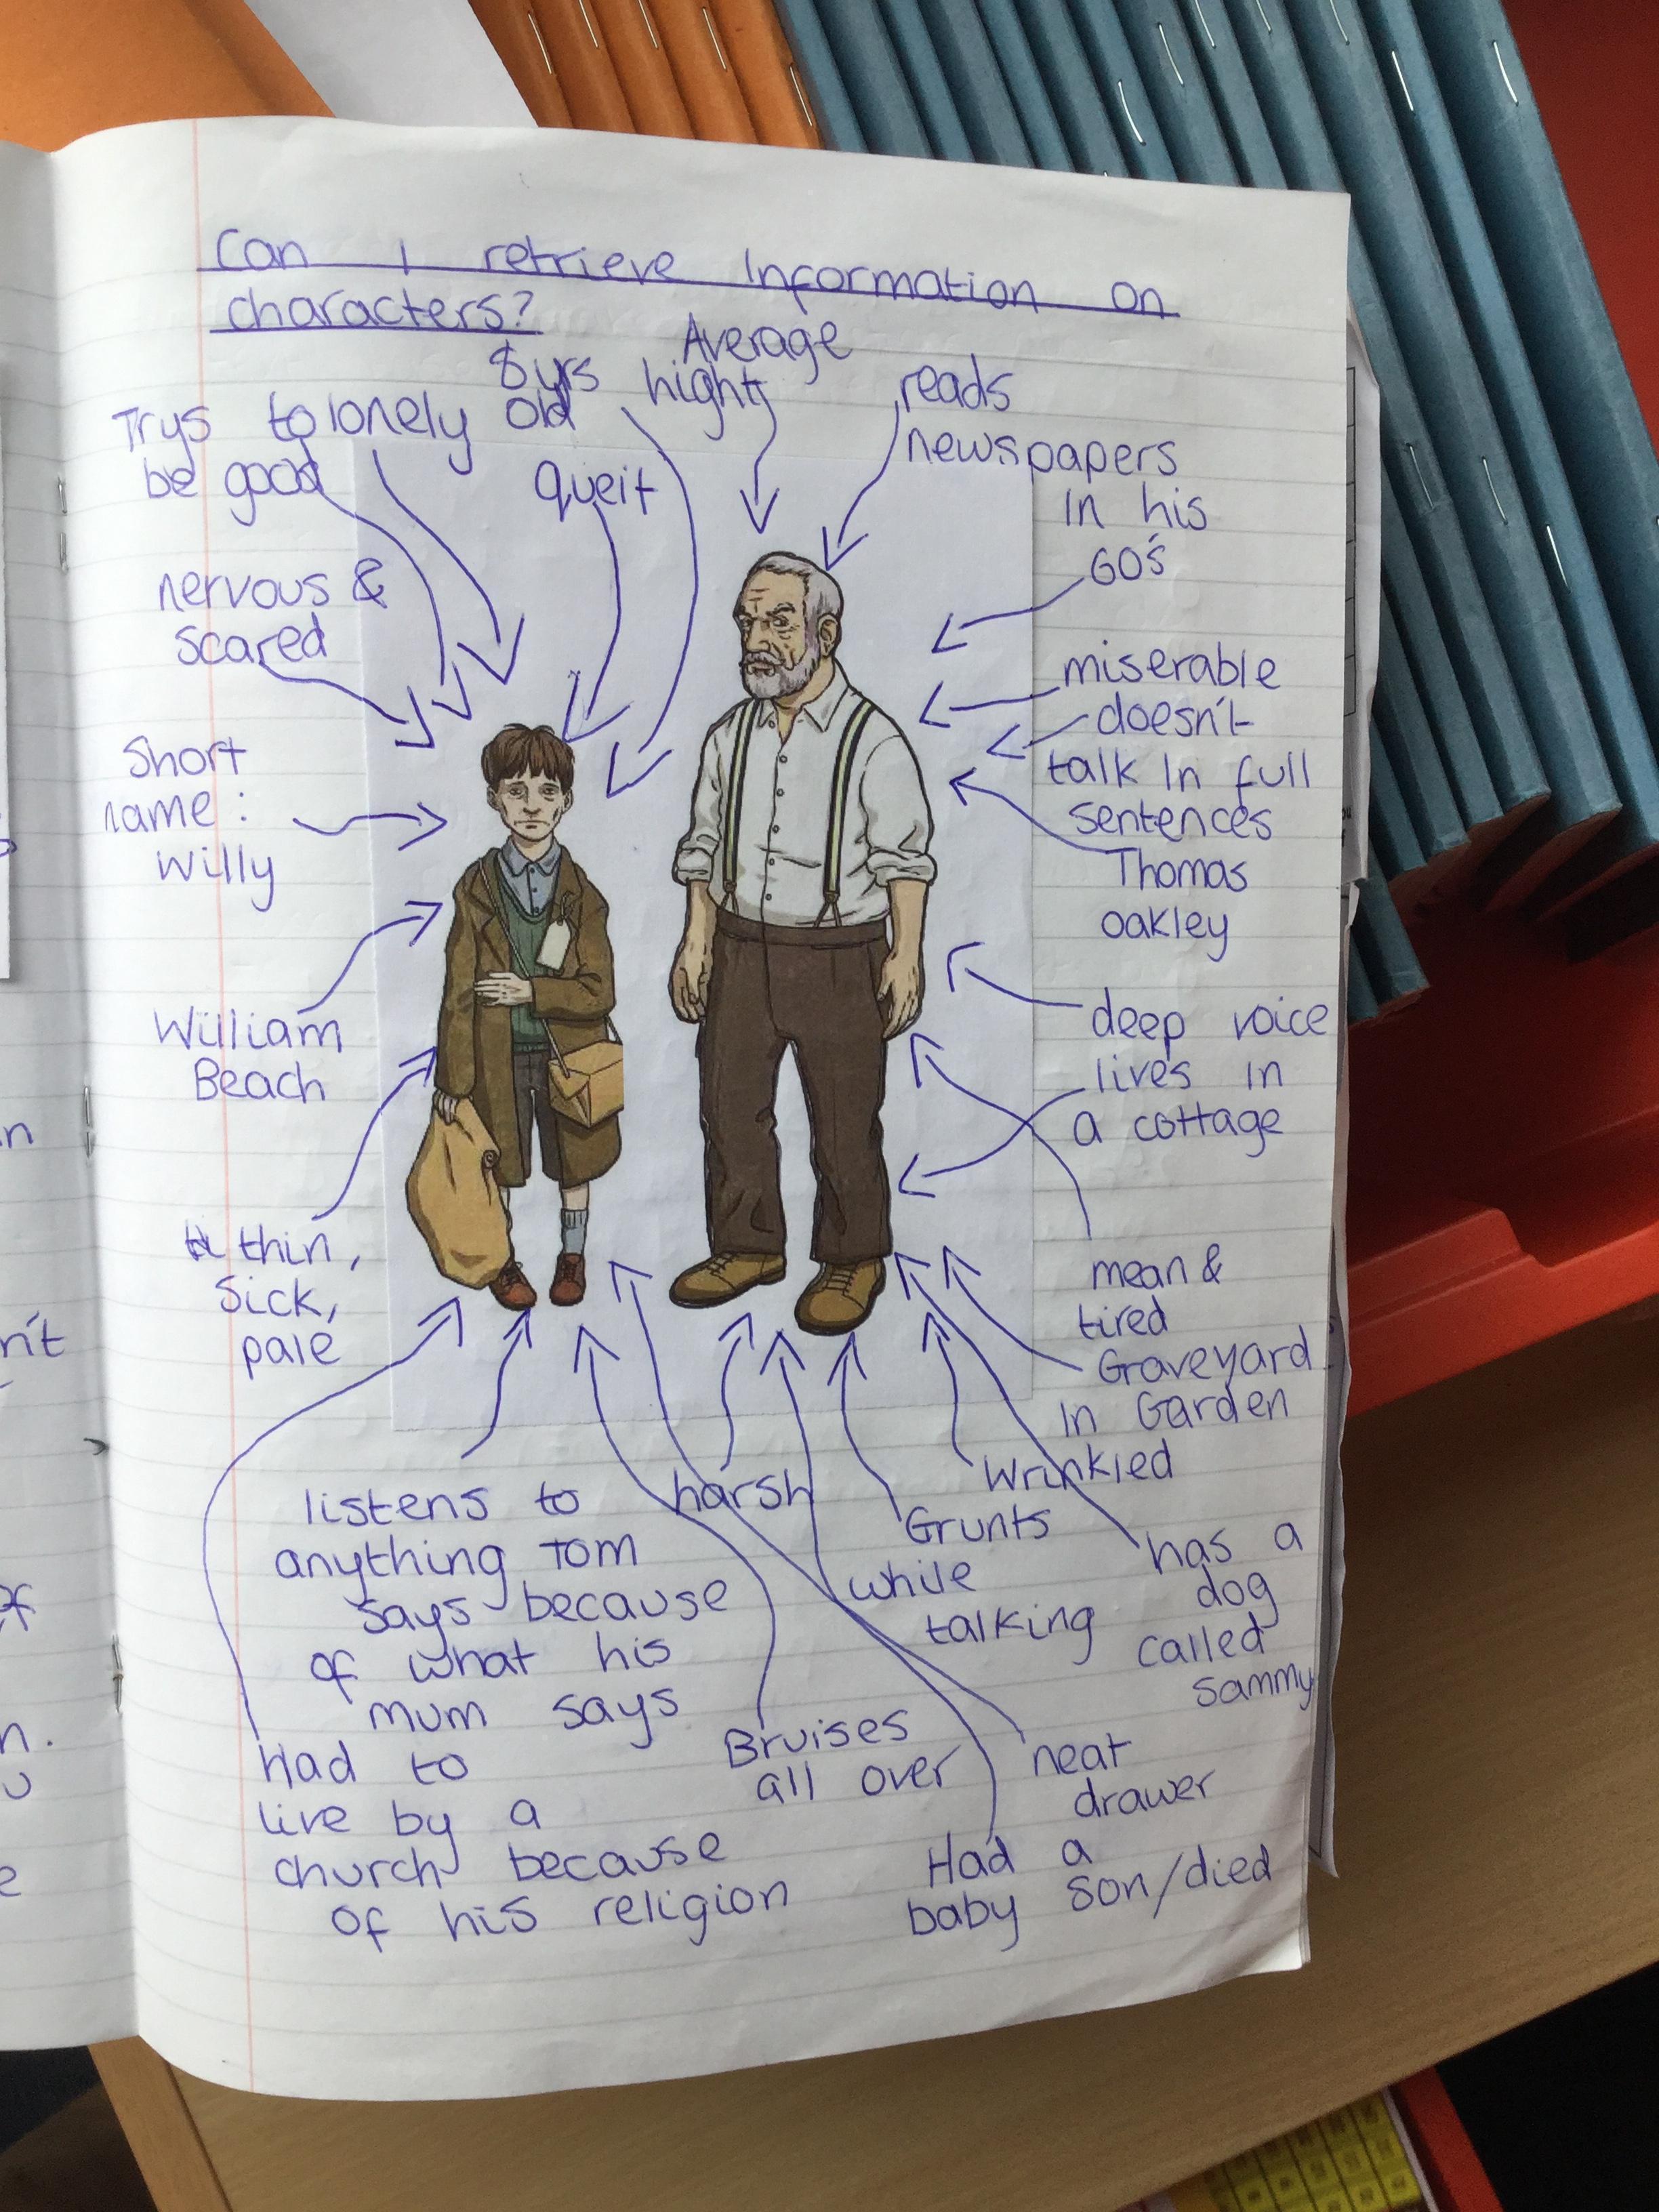 Can I retrieve Information on
characters?
Trys to
be good
lonely
8 yrs
old
queit
Average
hight
reads
newspapers
In his
60's
nervous &
scared
Short
name:
Willy
William
Beach
thin,
Sick,
pale
miserable
doesn't
talk In full
sentences
Thomas
oakley
deep voice
lives In
a cottage
mean &
tired
Graveyard
In Garden
Wrinkled
harsh
Grunts
while
talking
has a
dog
called
Sammy
listens to
anything Tom
says because
of what his
mum says
Had to
live by a
church because
of his religion
Bruises
all over
neat
drawer
Had a
baby son/died
n
n't
of
n.
u
e